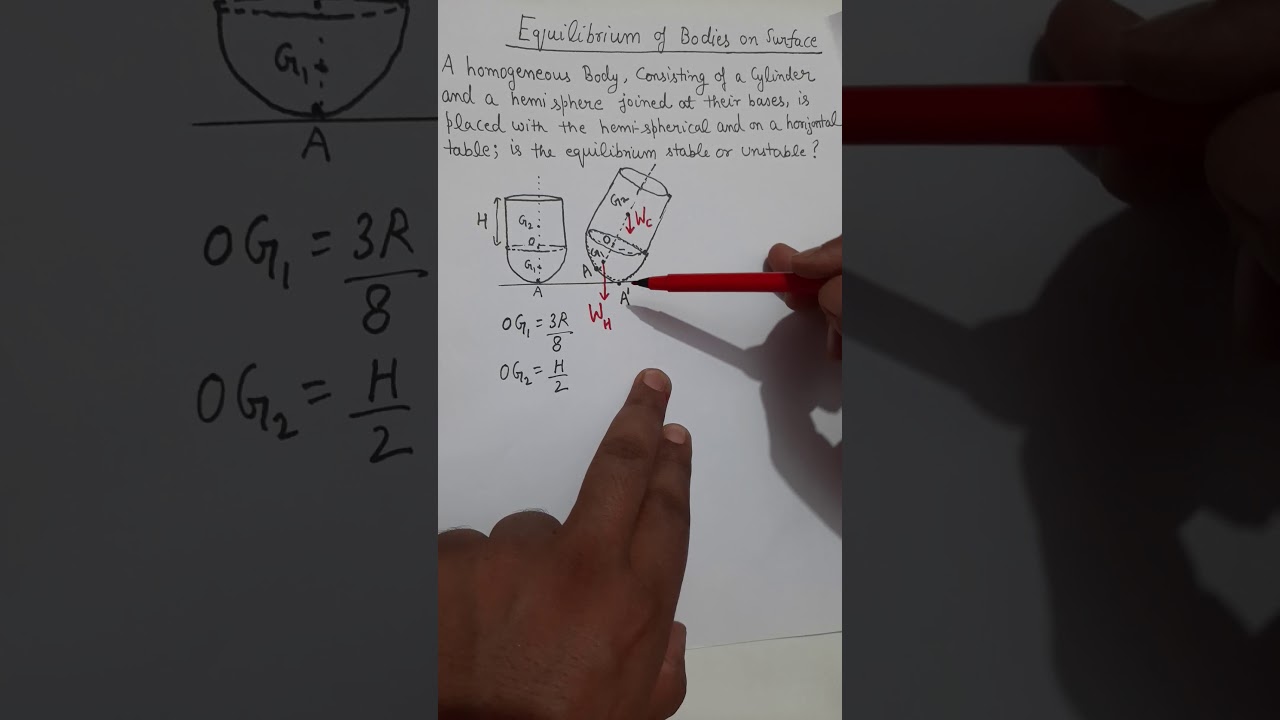 Equilibrium of Bodies on Surface
A homogeneous Body, Consisting of a Cylinder
and a hemisphere joined at their bases, is
placed with the hemi-spherical and on a horizontal
table; is the equilibrium stable or unstable?
H
G2
O
G1
A
G2
Wc
O
G1
A
A'
WH
OG1 = 3R/8
OG2 = H/2
G1
A
OG1 = 3R/8
OG2 = H/2